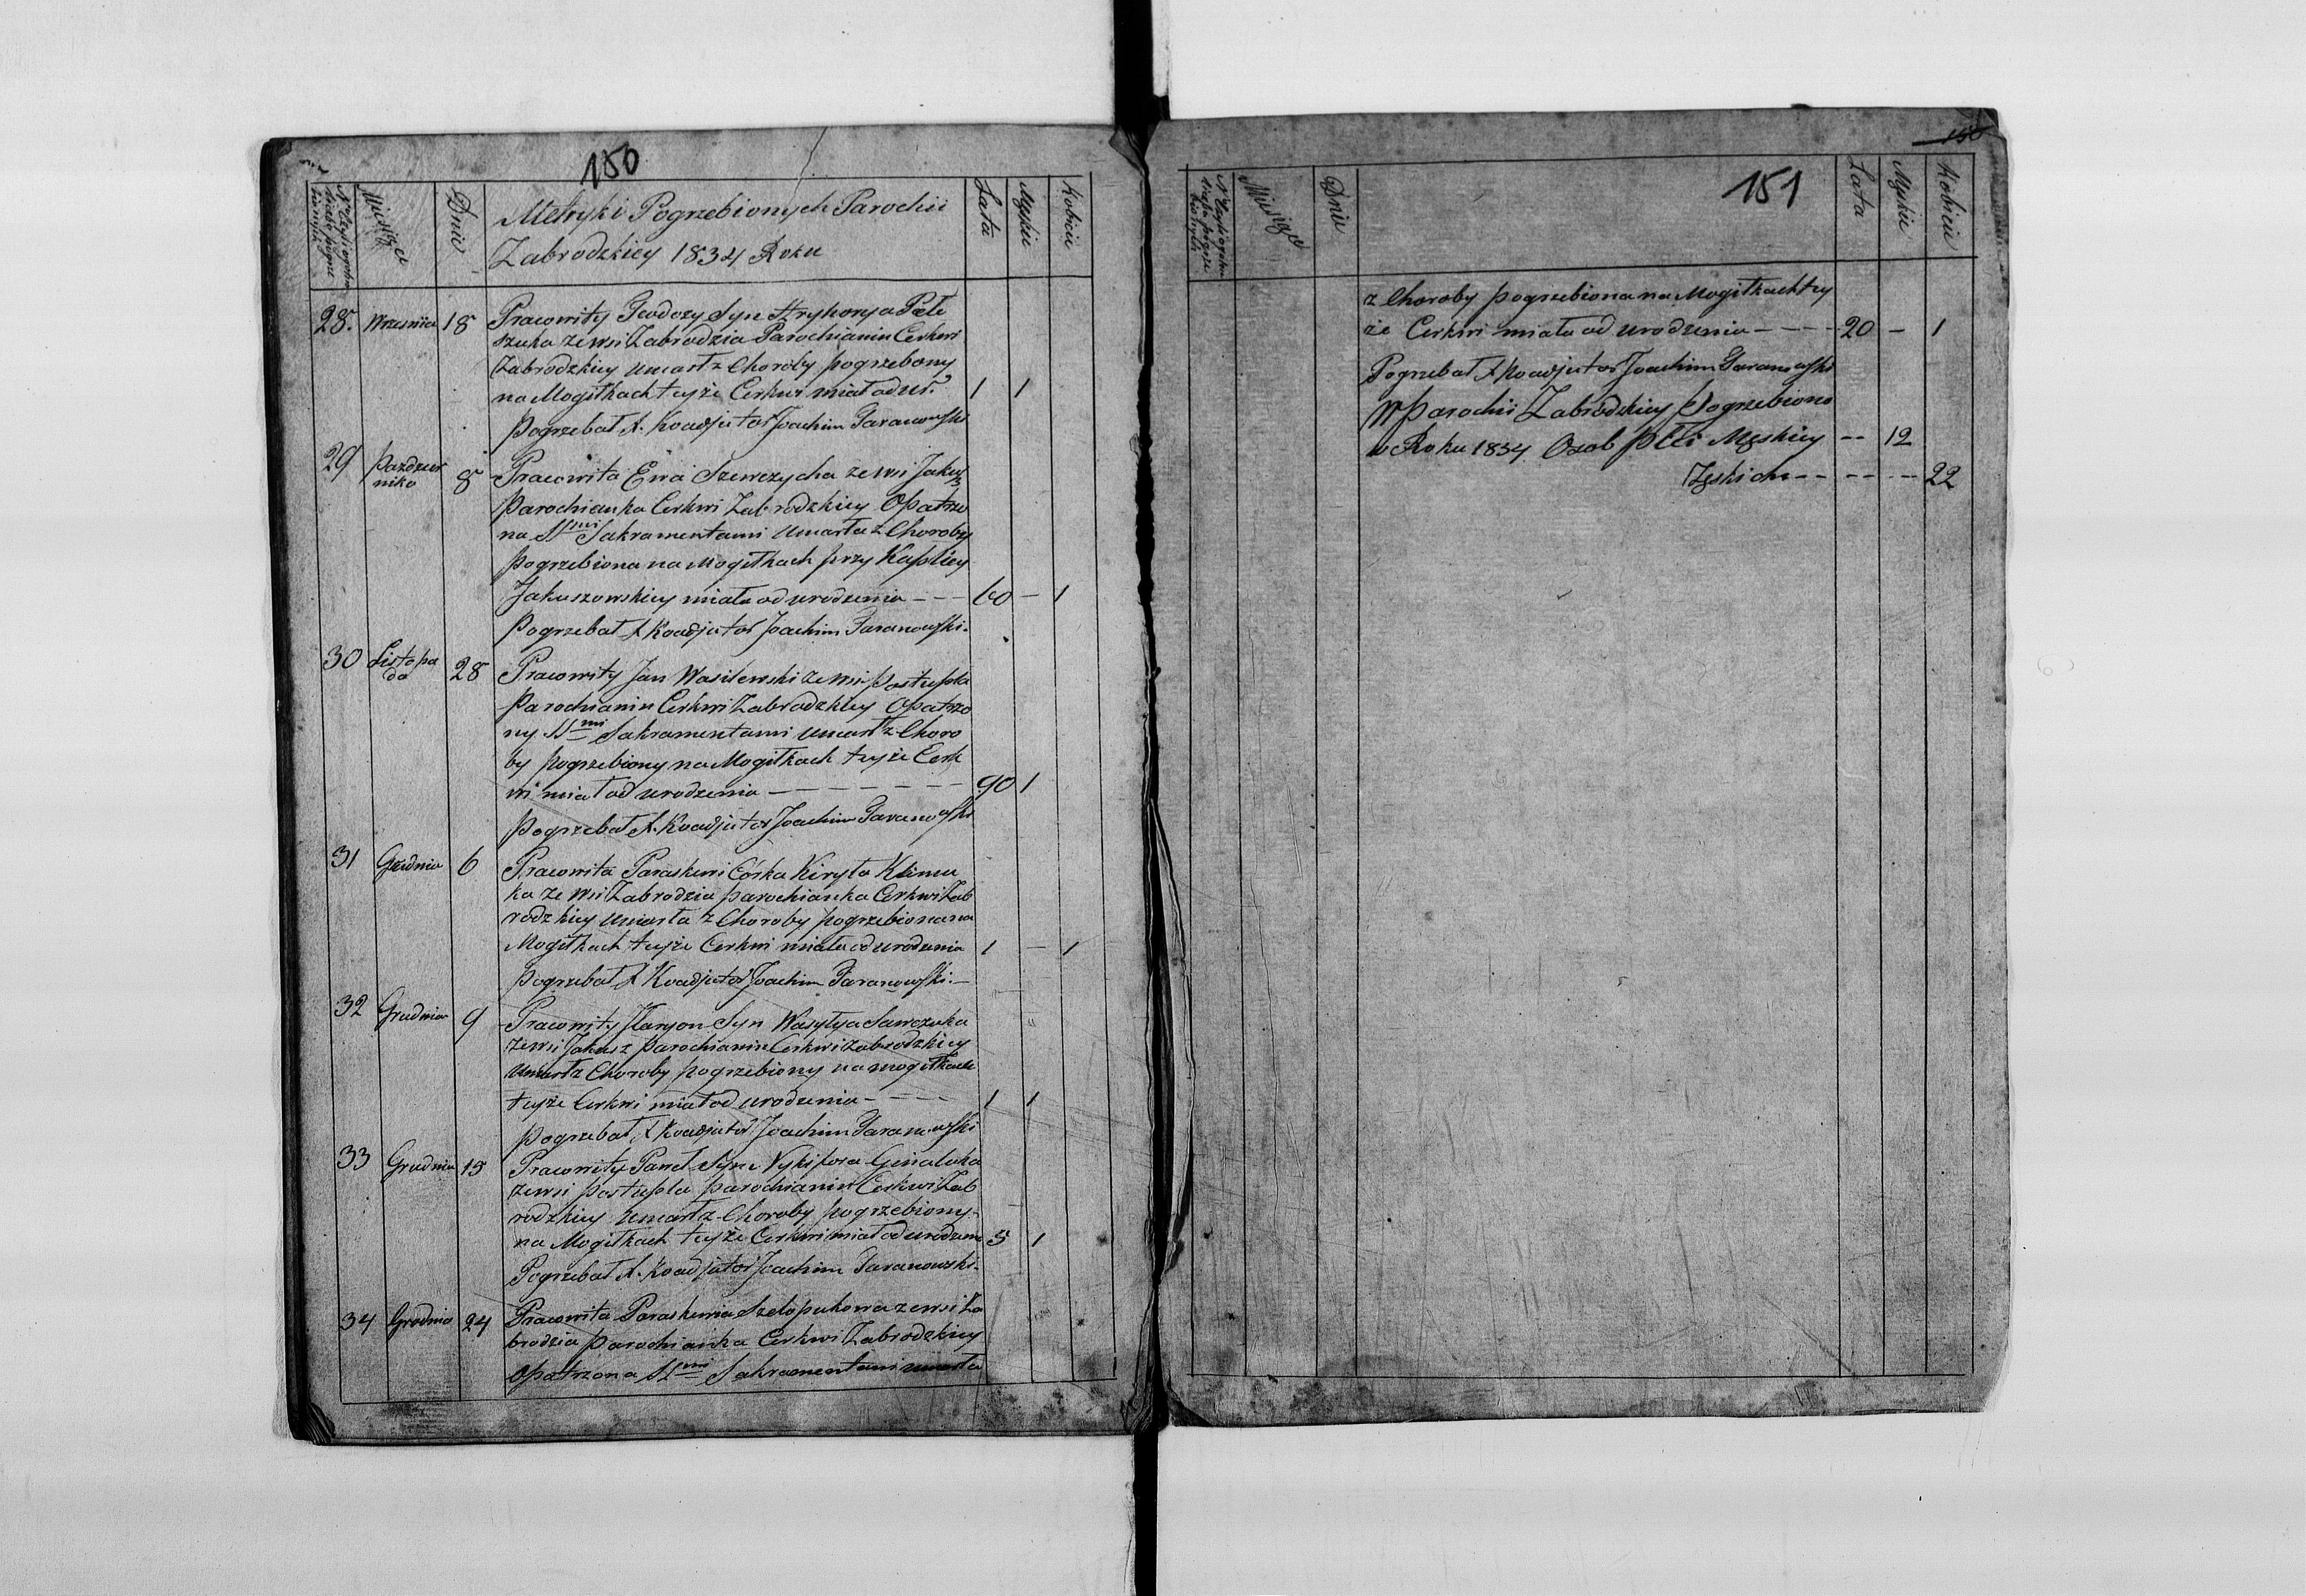 150
Miesiąc
Dnie
Metryki Pogrzebionych Parochii
Zabrodzkiey 1834 Roku
Lata
Męskie
Kobiece
28. Wrzesnia 18 Pracowity Teodozy Syn Hryhorya Pete
szuka ze wsi Zabrodzia Parochianin Cerkwi
Zabrodzkiey umarł z Choroby pogrzebony
na Mogiłkach teyże Cerkwi miał od ur. 1 1
Pogrzebał X. Koadjutor Joachim Taranowski
29 Pazdzier 8 Pracowita Ewa Szewczycha ze wsi Jakusz
nika
Parochianka Cerkwi Zabrodzkiey Opatrzo
na SSmi Sakramentami umarła z Choroby
pogrzebiona na Mogiłkach przy Kaplicy
Jakuszowskiey miała od urodzenia - - - 60 - 1
Pogrzebał X Koadjutor Joachim Taranowski.
30 Listopa 28 Pracowity Jan Wasilewski ze wsi Postupla
da
Parochianin Cerkwi Zabrodzkiey Opatrzo
ny SSmi Sakramentami umarł z Choro
by pogrzebiony na Mogiłkach teyże Cerk
wi miał od urodzenia - - - - - - - 90 1
Pogrzebał X. Koadjutor Joachim Taranowski
31 Grudnia 6 Pracowita Paraskewi Córka Kiryła Klimu
ka ze wsi Zabrodzia parochianka Cerkwi Zab
rodzkiey umarła z Choroby pogrzebiona na
Mogiłkach teyże Cerkwi miała od urodzenia 1 - 1
Pogrzebał X Koadjutor Joachim Taranowski. -
32 Grudnia 9 Pracowity Haryon Syn Wasylya Sawczuka
ze wsi Jakusz Parochianin Cerkwi Zabrodzkiey
umarł z Choroby pogrzebiony na mogiłkach
teyże Cerkwi miał od urodzenia - - - - 1 1
Pogrzebał X Koadjutor Joachim Taranowski
33 Grudnia 15 Pracowity Paweł Syn Nykifora
ze wsi Postupla parochianin Cerkwi Zab
rodzkiey umarł z Choroby pogrzebiony
na Mogiłkach teyże Cerkwi miał od urodzenia 5 1
Pogrzebał X. Koadjutor Joachim Taranowski.
34 Grudnia 24 Pracowita Paraskewia Szełopuhowa ze wsi Za
brodzia parochianka Cerkwi Zabrodzkiey
opatrzona SSmi Sakramentami umarła
150
151
Miesiąc
Dnie
Lata
Męskie
Kobiece
z Choroby pogrzebiona na Mogiłkach tey
że Cerkwi miała od urodzenia - - - - 20 - 1
Pogrzebał X Koadjutor Joachim Taranowski
W Parochii Zabrodzkiey Pogrzebiono
w Roku 1834 Osob płci Męskiey - - 12
Żęskich - - - - - - 22